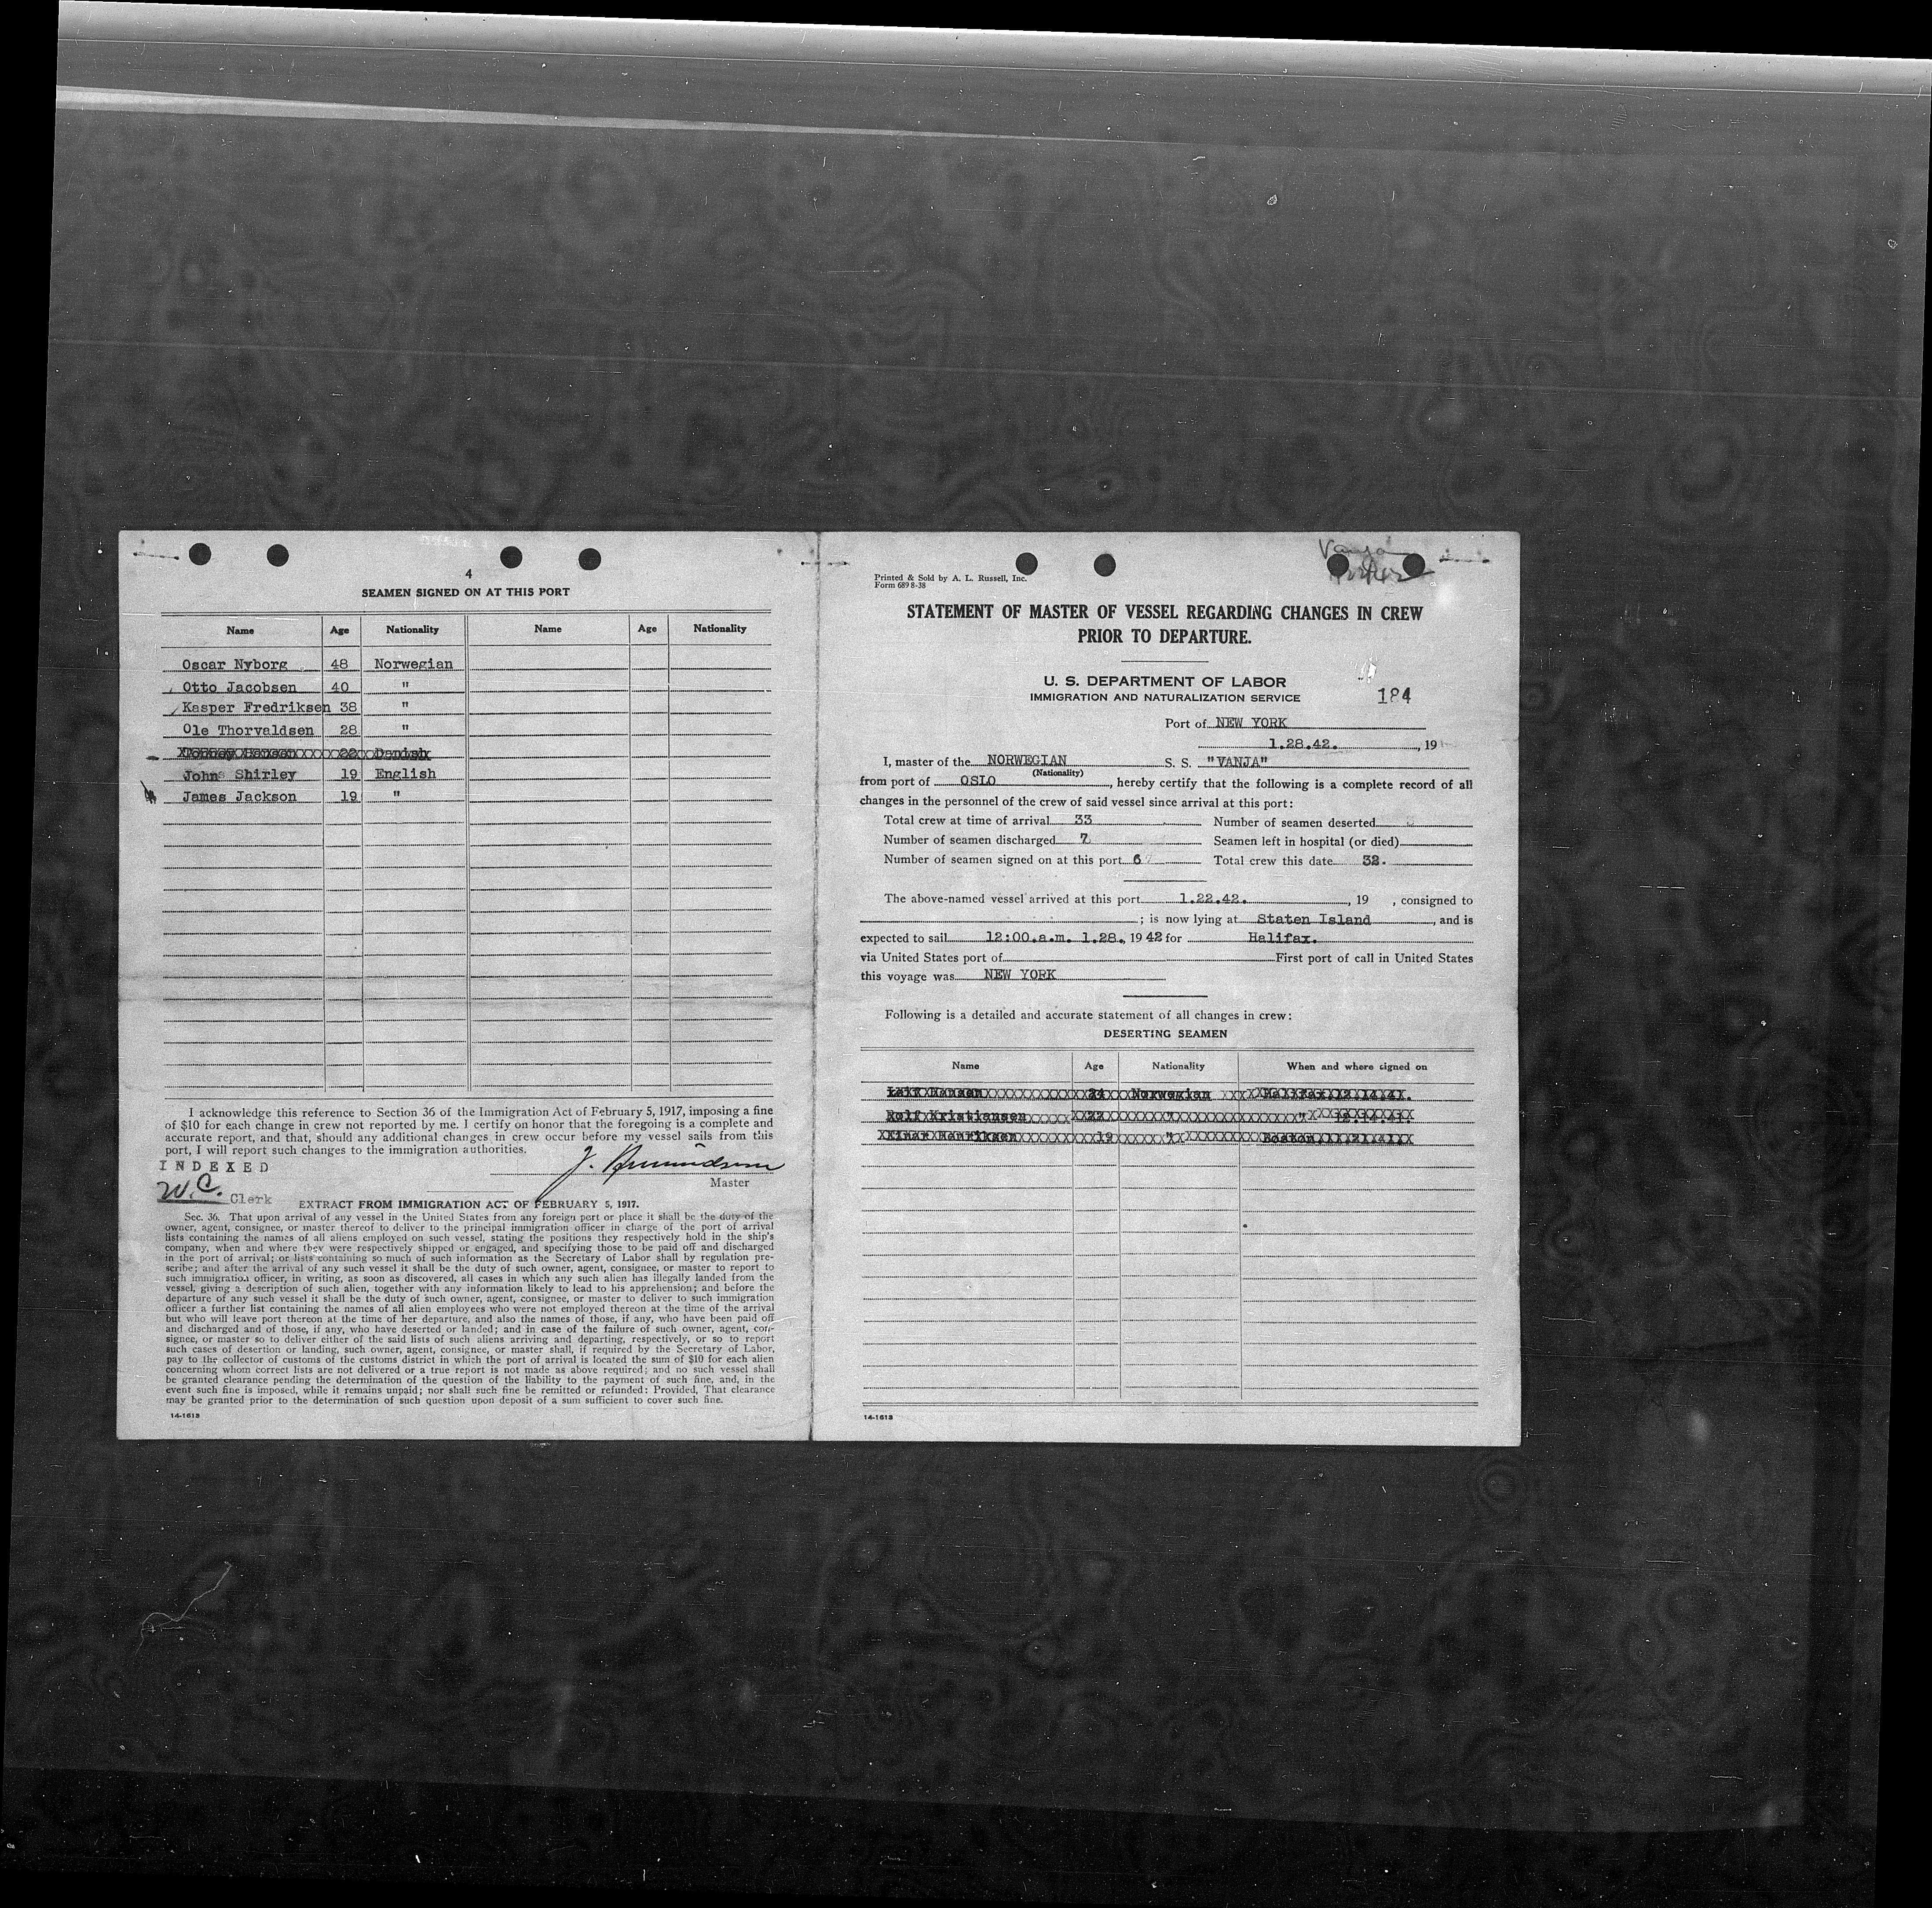 4
SEAMEN SIGNED ON AT THIS PORT
Name Age Nationality Name Age Nationality
Oscar Nyborg 48 Norwegian
Otto Jacobsen 40 "
Kasper Fredriksen 38 "
Ole Thorvaldsen 28 "
Hansen 22 Danish
John Shirley 19 English
James Jackson 19 "
I acknowledge this reference to Section 36 of the Immigration Act of February 5, 1917, imposing a fine
of $10 for each change in crew not reported by me. I certify on honor that the foregoing is a complete and
accurate report, and that, should any additional changes in crew occur before my vessel sails from this
port, I will report such changes to the immigration authorities.
INDEXED
J. Amundsen
Master
W.C. Clerk
EXTRACT FROM IMMIGRATION ACT OF FEBRUARY 5, 1917.
Sec. 36. That upon arrival of any vessel in the United States from any foreign port or place it shall be the duty of the
owner, agent, consignee, or master thereof to deliver to the principal immigration officer in charge of the port of arrival
lists containing the names of all aliens employed on such vessel, stating the positions they respectively hold in the ship's
company, when and where they were respectively shipped or engaged, and specifying those to be paid off and discharged
in the port of arrival; or lists containing so much of such information as the Secretary of Labor shall by regulation pre-
scribe; and after the arrival of any such vessel it shall be the duty of such owner, agent, consignee, or master to report to
such immigration officer, in writing, as soon as discovered, all cases in which any such alien has illegally landed from the
vessel, giving a description of such alien, together with any information likely to lead to his apprehension; and before the
departure of any such vessel it shall be the duty of such owner, agent, consignee, or master to deliver to such immigration
officer a further list containing the names of all alien employees who were not employed thereon at the time of the arrival
but who will leave port thereon at the time of her departure, and also the names of those, if any, who have been paid off
and discharged and of those, if any, who have deserted or landed; and in case of the failure of such owner, agent, con-
signee, or master so to deliver either of the said lists of such aliens arriving and departing, respectively, or so to report
such cases of desertion or landing, such owner, agent, consignee, or master shall, if required by the Secretary of Labor,
pay to the collector of customs of the customs district in which the port of arrival is located the sum of $10 for each alien
concerning whom correct lists are not delivered or a true report is not made as above required; and no such vessel shall
be granted clearance pending the determination of the question of the liability to the payment of such fine, and, in the
event such fine is imposed, while it remains unpaid; nor shall such fine be remitted or refunded: Provided, That clearance
may be granted prior to the determination of such question upon deposit of a sum sufficient to cover such fine.
14-1613
Vanja
Printed & Sold by A. L. Russell, Inc.
Form 689 8-38
STATEMENT OF MASTER OF VESSEL REGARDING CHANGES IN CREW
PRIOR TO DEPARTURE.
U. S. DEPARTMENT OF LABOR
IMMIGRATION AND NATURALIZATION SERVICE
184
Port of NEW YORK
1.28.42. , 19
I, master of the NORWEGIAN S. S. "VANJA"
(Nationality)
from port of OSLO , hereby certify that the following is a complete record of all
changes in the personnel of the crew of said vessel since arrival at this port:
Total crew at time of arrival 33 Number of seamen deserted
Number of seamen discharged 7 Seamen left in hospital (or died)
Number of seamen signed on at this port 6 Total crew this date 32.
The above-named vessel arrived at this port 1.22.42. , 19 , consigned to
; is now lying at Staten Island , and is
expected to sail 12:00.a.m. 1.28., 1942 for Halifax.
via United States port of First port of call in United States
this voyage was NEW YORK
Following is a detailed and accurate statement of all changes in crew:
DESERTING SEAMEN
Name Age Nationality When and where signed on
Leif Hansen 24 Norwegian Halifax 12.14.41.
Rolf Kristiansen 22 " " 12.14.41.
Einar Henriksen 19 " Boston
14-1613